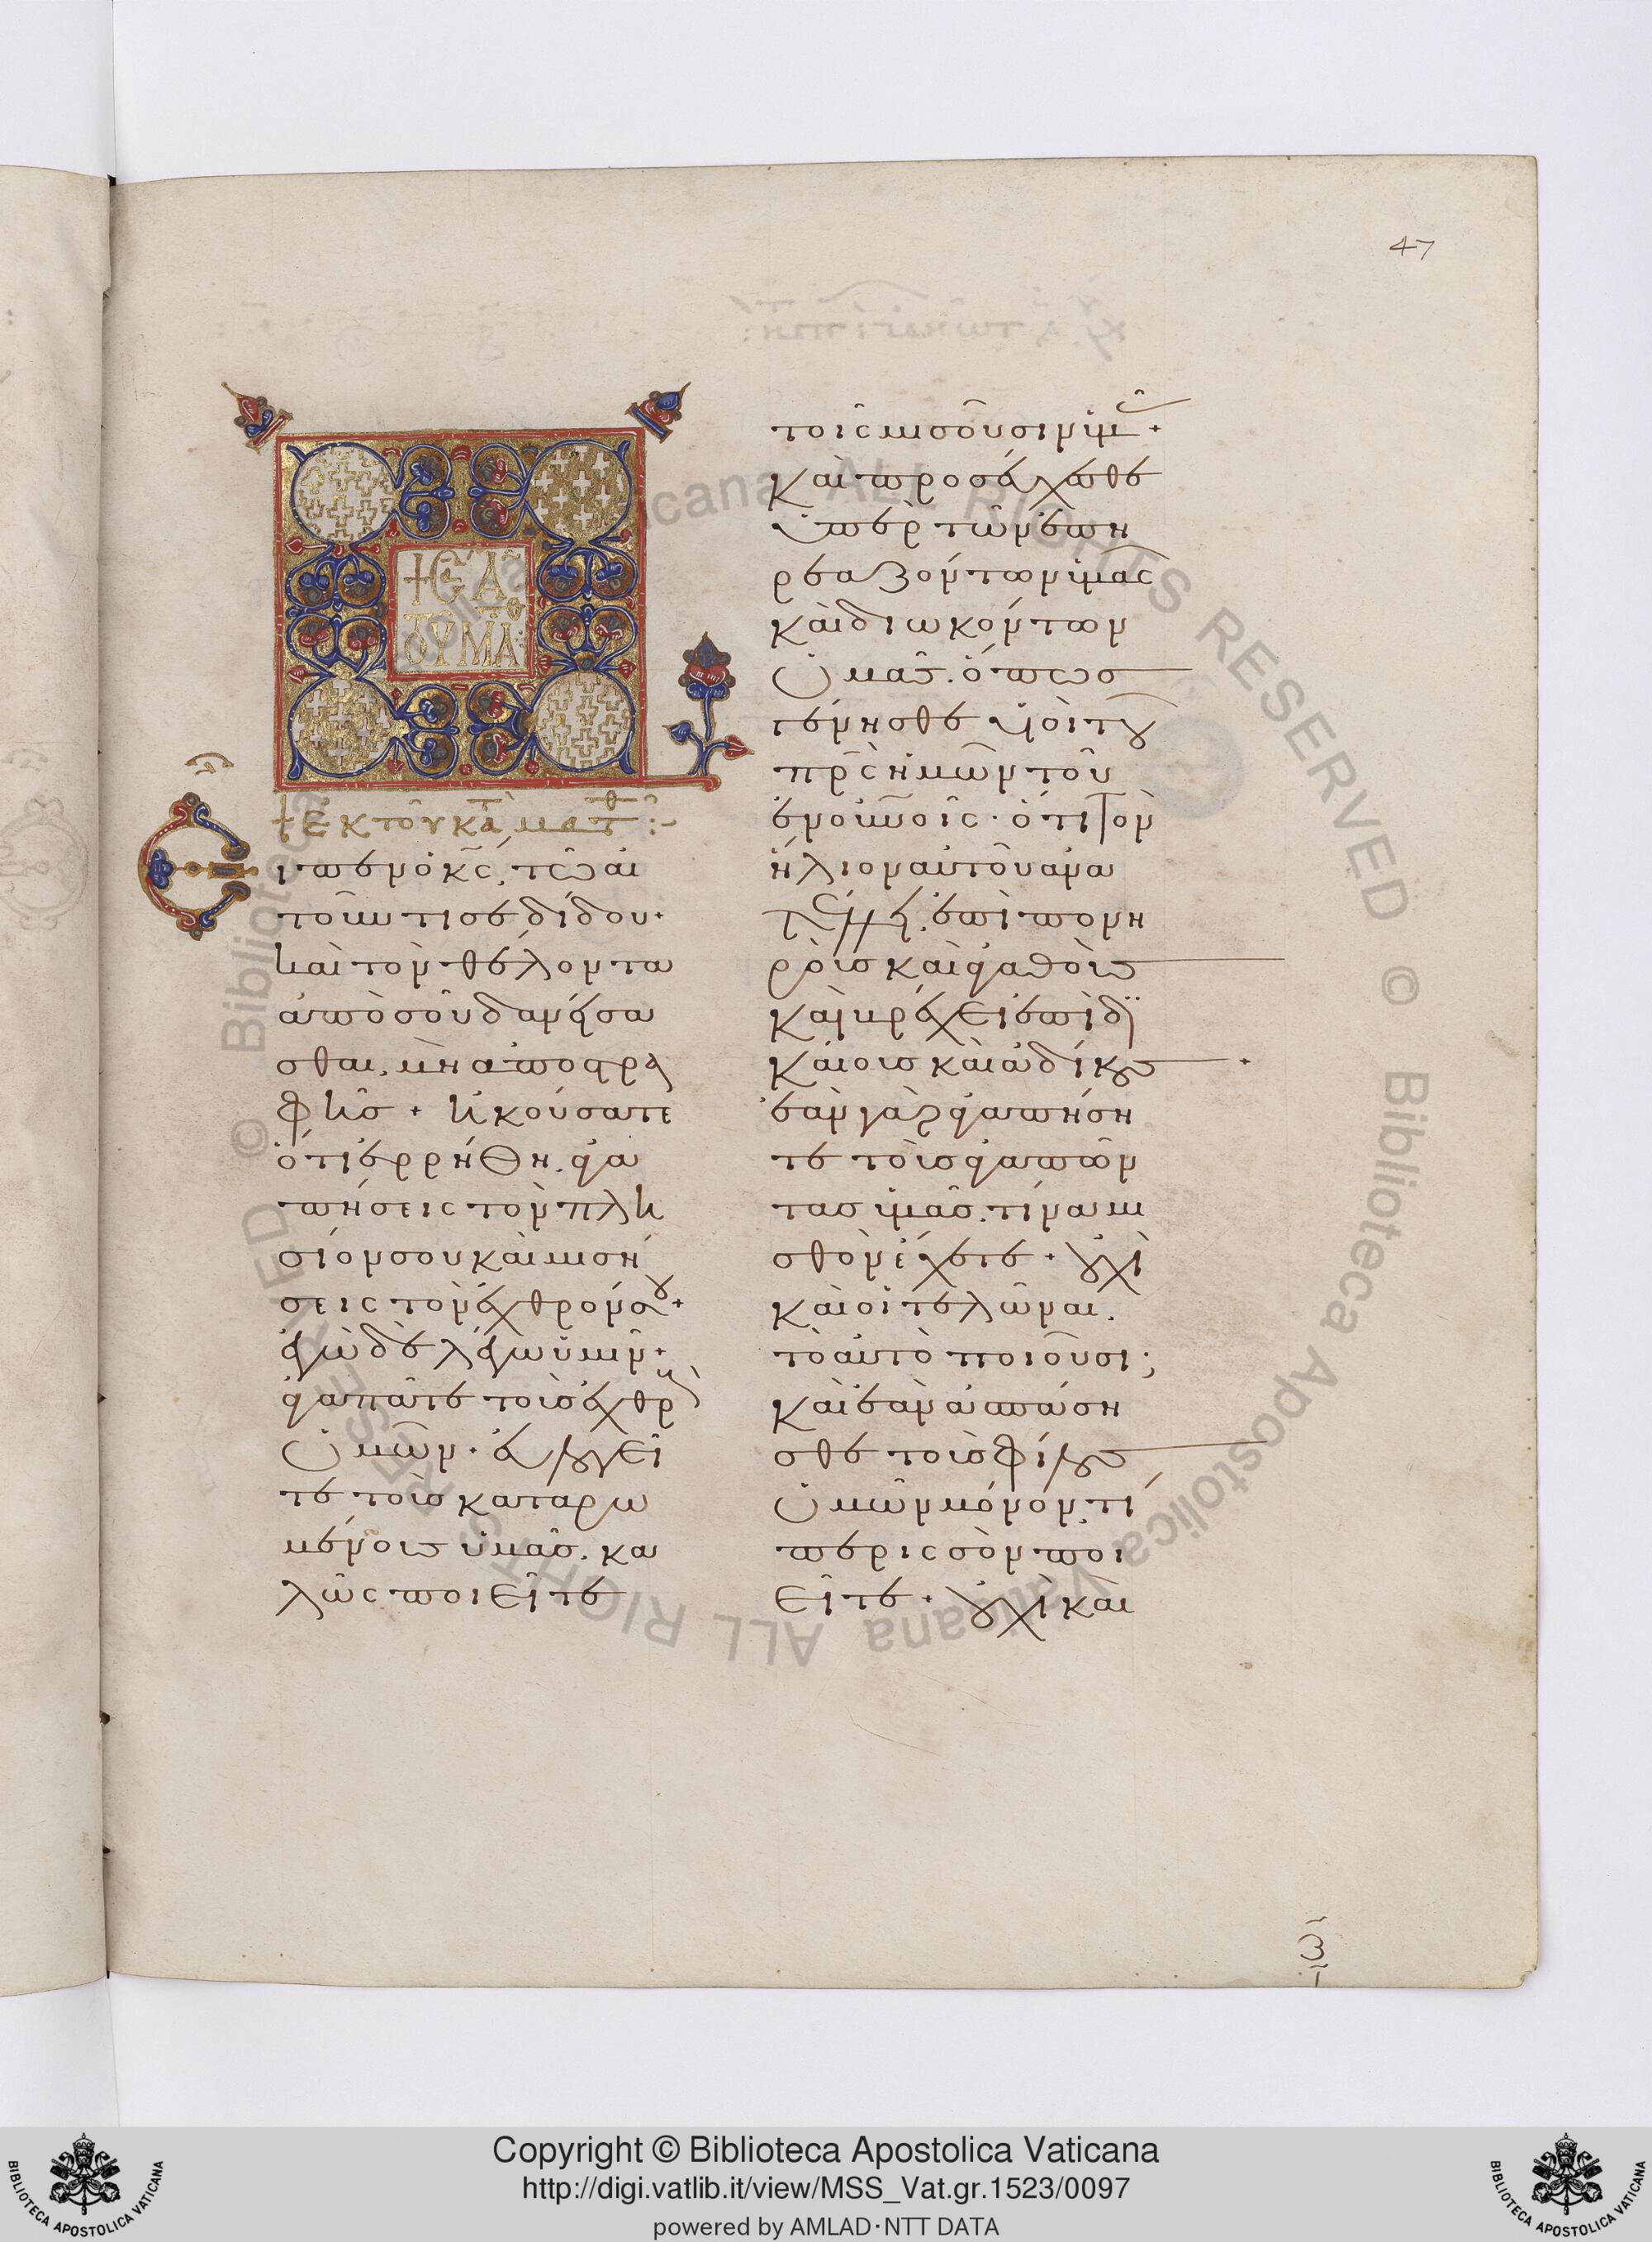 47
+ ΕΥΑ
ΤΟΥ ΜΑΤΘ
+ Ἐκ τοῦ κατὰ ματθ :-
Εἶπεν ὁ κς, τῷ αἰ
τοῦντι σε δίδου·
καὶ τὸν θέλοντα
ἀπὸ σοῦ δανείσα
σθαι, μὴ ἀποστρα
φῆς + ἠκούσατε
ὅτι ἐρρήθη, ἀγα
πήσεις τὸν πλη
σίον σου καὶ μισή
σεις τὸν ἐχθρόν σου +
ἐγὼ δὲ λέγω ὑμῖν·
ἀγαπᾶτε τοὺς ἐχθροὺς
ὑμῶν · εὐλογεῖ
τε τοῖς καταρω
μένοις ὑμᾶς. κα
λῶς ποιεῖτε
τοῖς μισοῦσιν ὑμᾶς +
καὶ προσεύχεσθε
ὑπὲρ τῶν ἐπη
ρεαζόντων ὑμᾶς
καὶ διωκόντων
ὑμᾶς. ὅπως
γένησθε υἱοὶ τοῦ
πρς ἡμῶν τοῦ
ἐν οὐνοῖς · ὅτι τὸν
ἥλιον αὐτοῦ ἀνα
τέλλει, ἐπὶ πονη
ροὺς καὶ ἀγαθοὺς
καὶ βρέχει ἐπὶ δι
καίους καὶ ἀδίκους +
ἐὰν γὰρ ἀγαπήση
τε τοὺς ἀγαπῶν
τας ὑμᾶς. τίνα μι
σθὸν ἔχετε · οὐχὶ
καὶ οἱ τελῶναι.
τὸ αὐτὸ ποιοῦσι;
καὶ ἐὰν ἀσπάση
σθε τοὺς φίλους
ὑμῶν μόνον, τί
περισσὸν ποι
εῖτε · οὐχὶ καὶ
© Biblioteca Apostolica Vaticana ALL RIGHTS RESERVED
Copyright © Biblioteca Apostolica Vaticana
http://digi.vatlib.it/view/MSS_Vat.gr.1523/0097
powered by AMLAD·NTT DATA
BIBLIOTECA APOSTOLICA VATICANA
BIBLIOTECA APOSTOLICA VATICANA